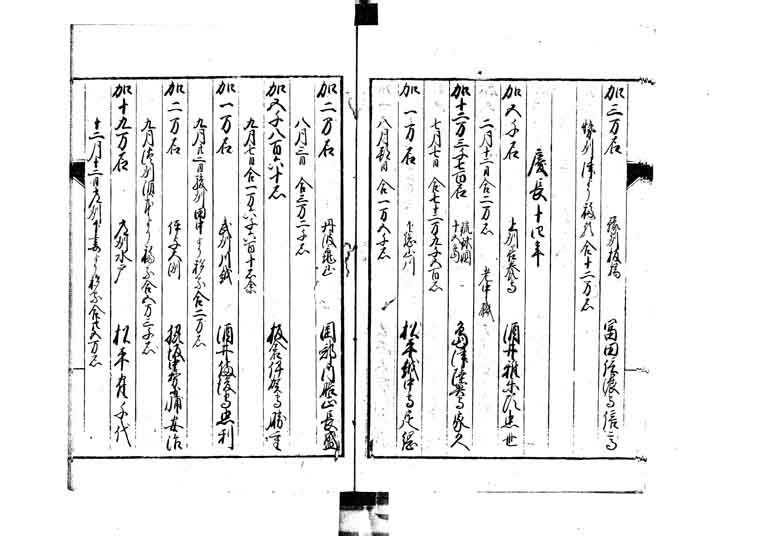 加三万石 豫州板嶋 冨田信濃守信高
豫州津より移於合十二万石
慶長十四年
加五千石 上州 酒井雅楽頭忠世
二月十二日合二万石 老中職
加十二万三千七百石 琉球國十五嶋 嶋津陸奥守家久
七月七日合七十二万九千五百石
加一万石 山川 松平越中守定綱
八月 合一万五千石
加二万石 丹波亀山 岡部内膳正長盛
八月三日合三万二千石
加五千八百六十石 板倉伊賀守勝重
九月七日合一万六千六百十石余
加一万石 武州川越 酒井備後守忠利
九月廿三日駿州田中より移於合二万石
加二万石 伊予大洲 脇坂中務少輔安治
九月淡州須本より移於合五万三千石
加十九万石 水戸 松平 千代
十二月十二日 下妻より移於合廿五万石